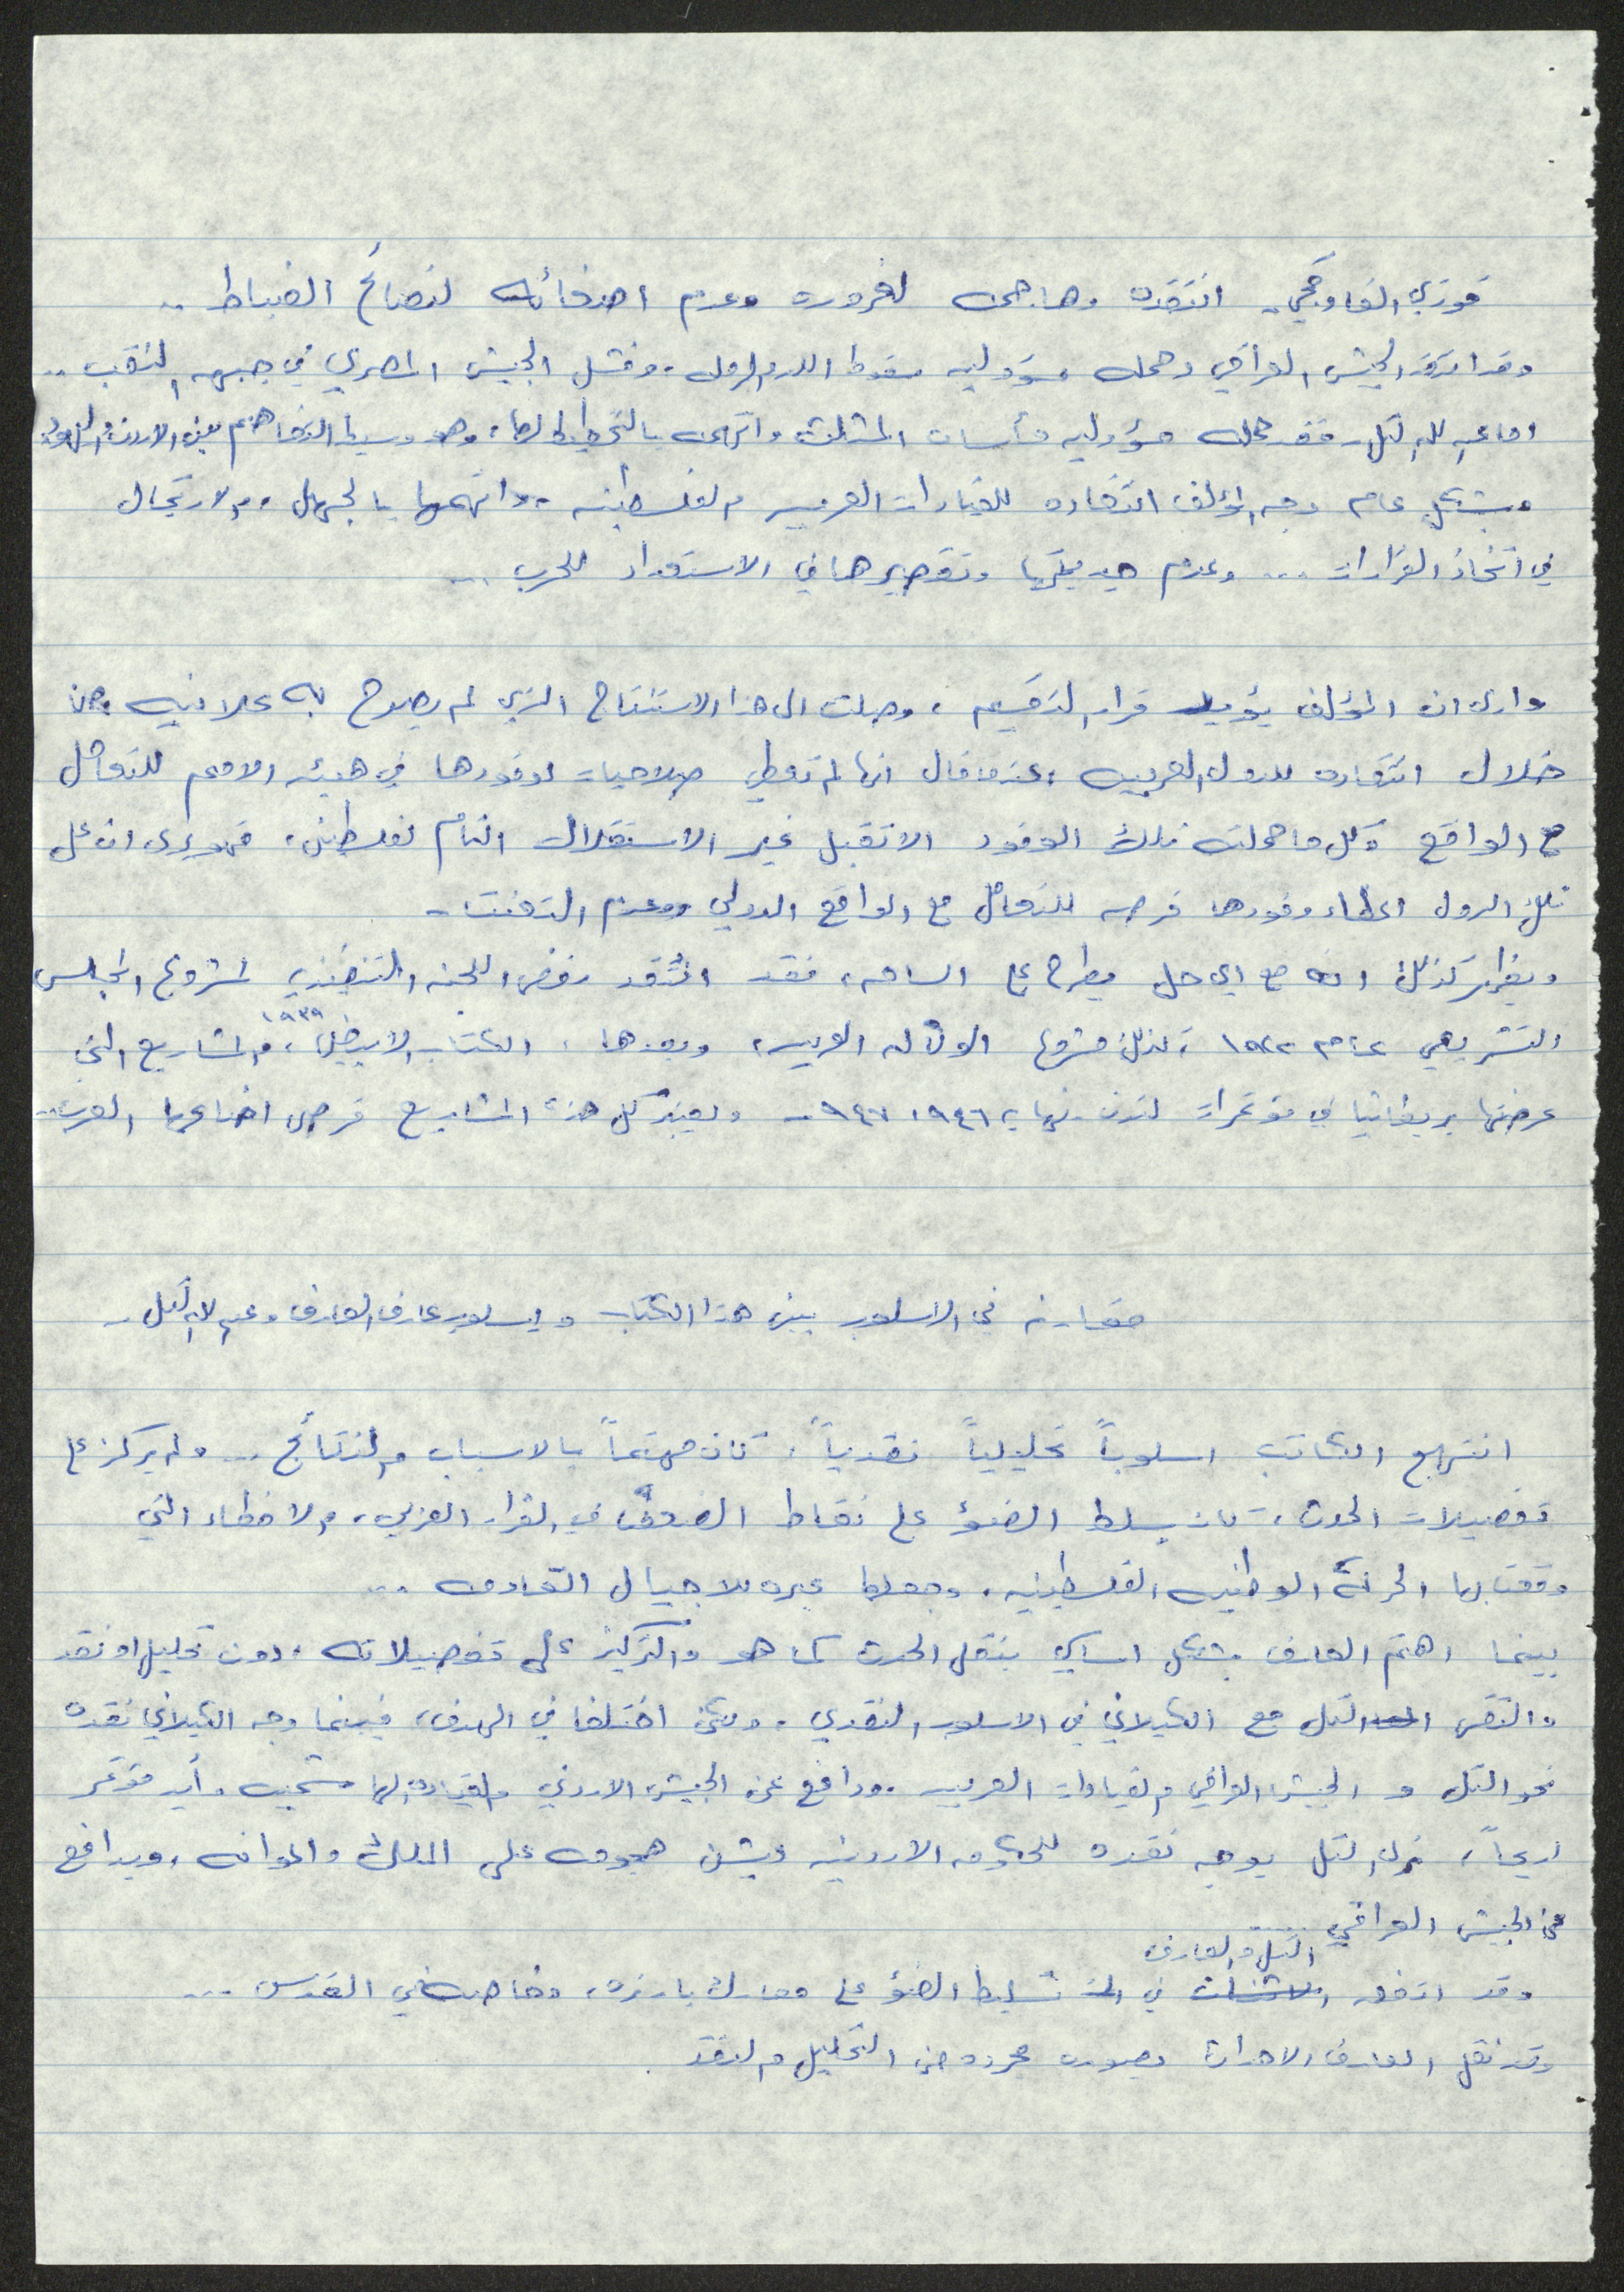 فوزي القاوقجي. انتقده وهاجمه لغروره وعدم اصغائه لنصائح الضباط ..
وقد انتقد الجيش العراقي وحمله مسؤوليه سقوط اللد والرمله. وفشل الجيش المصري في جبهه النقب ..
اما عبد الله التل. فقد حمله مسؤوليه مأساة المثلث واتهمه بالتخطيط لها، وهو وسيط التفاهم بين الاردن واليهود.
وبشكل عام وجه المؤلف انتقاده للقيادات العربيه والفلسطينيه . واتهمها بالجهل ، والارتجال
في اتخاذ القرارات ... وعدم جديتها وتقصيرها في الاستعداد للحرب ...
وارى ان المؤلف يؤيد قرار التقسيم ، وصلت الى هذا الاستنتاج الذي لم يصرح به علانيه من
خلال انتقاده للدول العربيه ، عندما قال انها لم تعطي صلاحيات لوفودها في هيئه الامم للتعامل
مع الواقع وكل ما حملته تلك الوفود الا تقبل غير الاستقلال التام لفلسطين ، فهو يرى ان على
تلك الدول اعطاء وفودها فرصه للتعامل مع الواقع الدولي وعدم التعنت .
ويظهر كذلك انه مع اي حل يطرح على الساحه ، فقد انتقد رفض اللجنه التنفيذيه لمشروع المجلس
التشريعي عام ١٩٢٢ ، كذلك مشروع الوكاله العربيه ، وبعدها ، الكتاب الابيض ١٩٣٩ ، والمشاريع التي
عرضتها بريطانيا في مؤتمرات لندن نهايه ١٩٤٦ ، ٩٤٧ . ويعتبر كل هذه المشاريع فرص اضاعها العرب ..
مقارنه في الاسلوب بين هذا الكتاب واسلوب عارف العارف وعبد الله التل .
انتهج الكاتب اسلوباً تحليلياً نقدياً ، كان مهتماً بالاسباب والنتائج .. ولم يركز على
تفصيلات الحدث ، كان يسلط الضوء على نقاط الضعف في القرار العربي ، والاخطاء التي
وقعت بها الحركة الوطنيه الفلسطينيه ، وجعلها عبره للاجيال القادمه ...
بينما اهتم العارف بشكل اساسي بنقل الحدث كما هو والتركيز على تفصيلاته ، دون تحليل او نقد
والتقى التل مع الكيلاني في الاسلوب النقدي . ولكن اختلفا في الهدف ، فبينما وجه الكيلاني نقده
نحو التل والجيش العراقي والقيادات العربيه . ودافع عن الجيش الاردني والقياده الهاشميه . وأيد مؤتمر
اريحا ، نرى التل يوجه نقده للحكومه الاردنيه ويشن هجومه على الملك واعوانه ، ويدافع
عن الجيش العراقي ....
وقد اتفق التل والعارف في تسليط الضوء على معارك بارزه ، وخاصه في القدس ...
وقد نقل العارف الاحداث بصوره مجرده من التحليل والنقد .